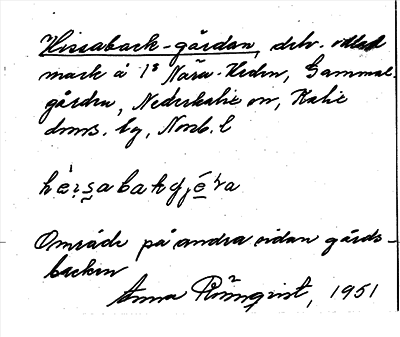 Hissaback-gårdan, delv. odlad
mark å 1s Nära-Heden, Gammal-
gården, Nederkalix on, Kalix
doms. lg, Norrb. l
hèṛṣabakgję́ra
Område på andra sidan gårds-
backen
Anna Rönnqvist, 1951